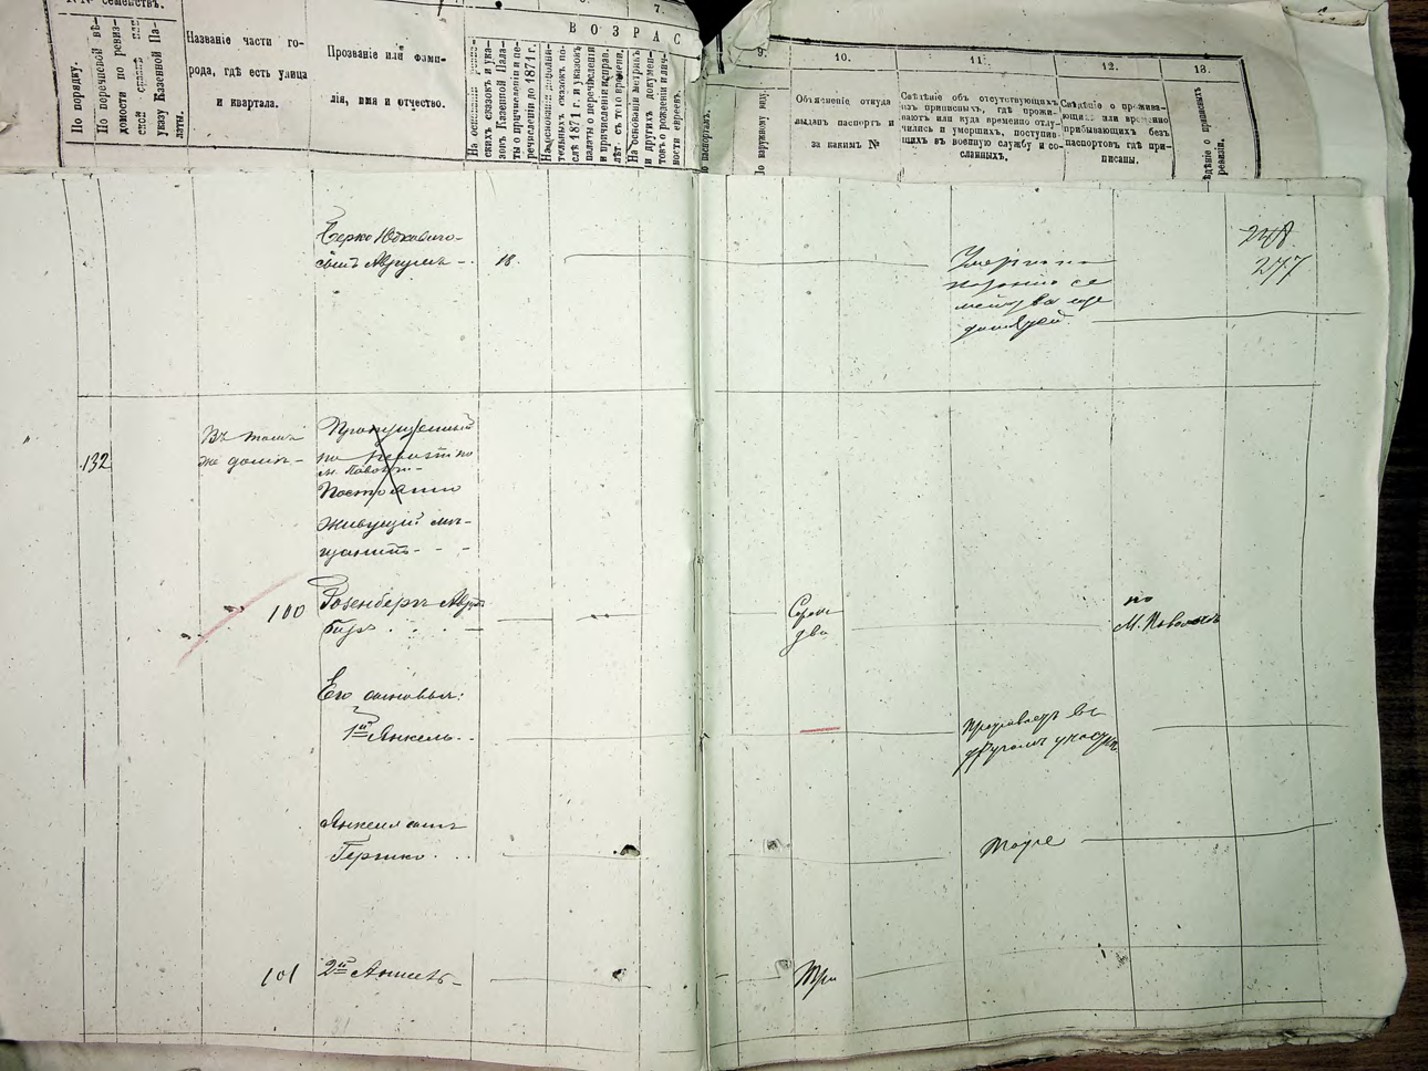 №№ семействъ.
По порядку.
По перечневой вѣ-
домости по ревиз-
ской сказкѣ или
указу Казенной Па-
латы.
Названіе части го-
рода, гдѣ есть улица
и квартала.
Прозваніе или фами-
лія, имя и отчество.
7.
ВОЗРАС
На основаніи ревиз-
скихъ сказокъ и ука-
зовъ Казенной Пала-
ты о причисленіи и пе-
речисленіи до 1871 г.
На основаніи дополни-
тельныхъ сказокъ по-
слѣ 1871 г. и указовъ
палаты о перечисленіи
и причисленіи исправ.
лѣт. съ того времени.
На основаніи метрикъ
и другихъ докумен-
товъ о рожденіи и лич-
ности евреевъ.
по паспортамъ.
9.
По наружному виду.
10.
Объясненіе откуда
выданъ паспортъ и
за какимъ №
11.
Свѣдѣніе объ отсутствующихъ
изъ приписныхъ, гдѣ прожи-
ваютъ или куда временно отлу-
чились и умершихъ, поступив-
шихъ въ военную службу и со-
сланныхъ.
12.
Свѣдѣніе о прожива-
ющихъ или временно
прибывающихъ безъ
паспортовъ гдѣ при-
писаны.
13.
Свѣдѣніе о приписныхъ
ревизіи.
Берко Юдковичо-
сынъ Аврумъ - .
18.
248.
277
132
Въ томъ
же домѣ -
Пропущенный
по
м. Паволочи -
Постоянно
Живущій мѣ-
щанинъ - - -
100
Розенбергъ Аврумъ
Беръ . . . —
Сорокъ
два
по
М. Паволочь
Его сыновья:
1й Янкель . .
Проживаетъ въ
другомъ участкѣ
Янкеля сынъ
Гершко . . .
Тоже
101
2й Аншель -
Три